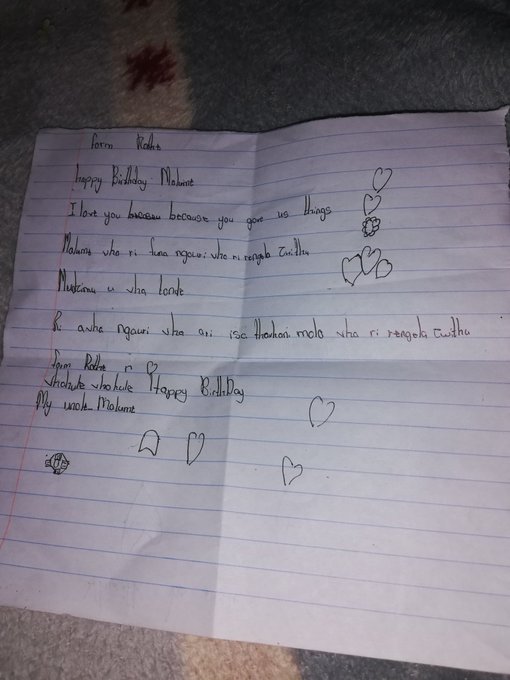 form Rothe
happy Birthday Malume
I love you because because you gave us things
Malume vha ri funa ngauri vha ri rengela zwithu
Mudzimu u vha tonde
Ri a vha ngauri vha ori isa thavhani mola vha ri rengela zwithu
form Rothe n
vhakule vhakule Happy BirthDay
My uncle Malume